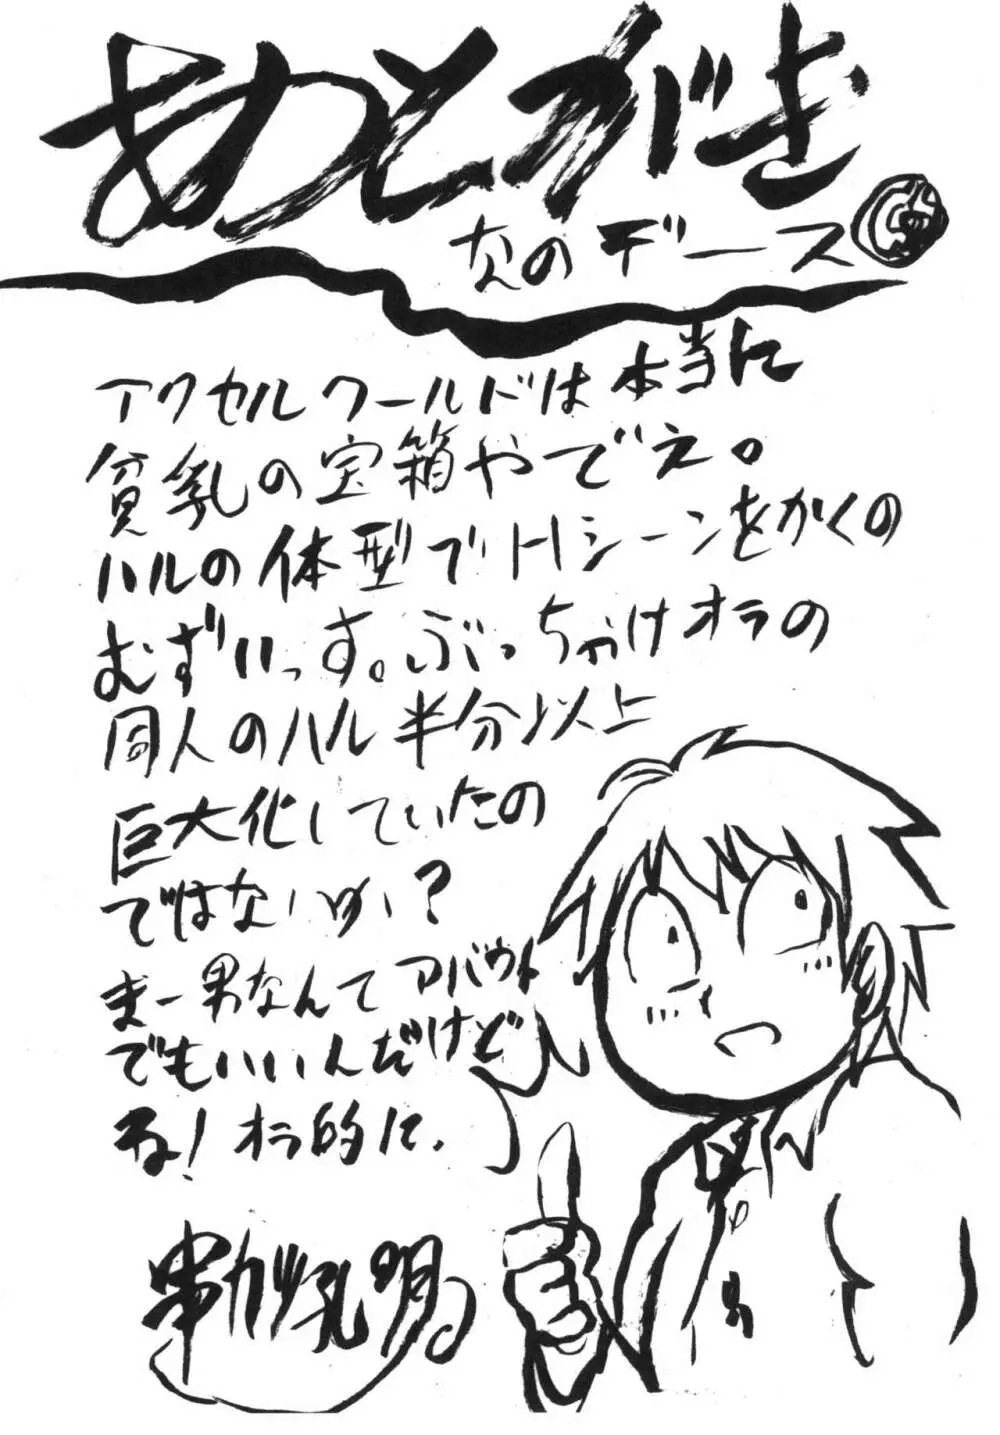 あとがき
なのデース
アクセルワールドは本当に
貧乳の宝箱やでぇ。
ハルの体型でHシーンをかくの
むずいっす。ぶっちゃけオラの
同人のハル半分以上
巨大化していたの
ではないか？
まー男なんてアバウト
でもいいんだけど
ね！オラ的に、
串カツ孔明